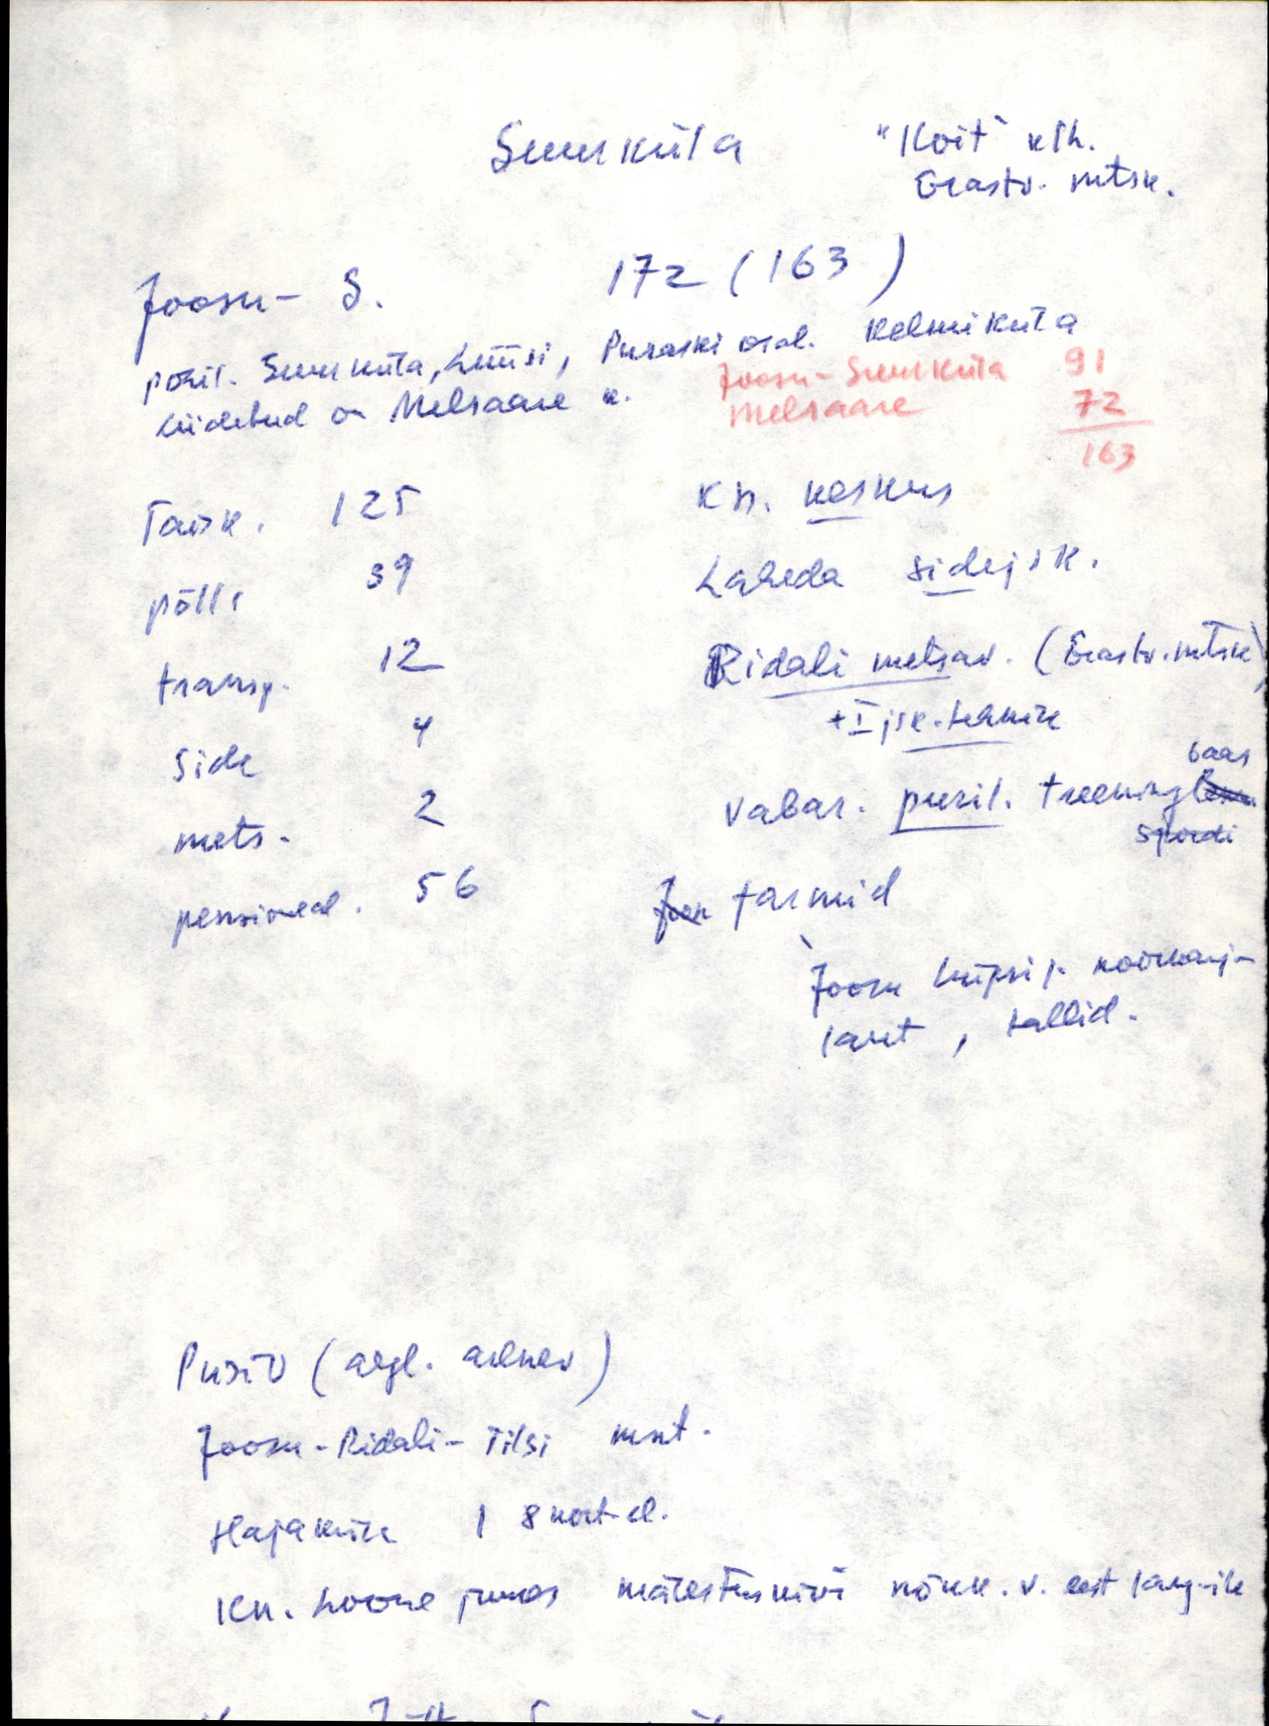 Suurküla "Koit" klh.
Erastv. mtsk.
Joosu- S. 172 (163)
põhil. Suurküla, Lüüsi, Puraski osal. Kelmiküla
Liidetud on Melsaare k.
Joosu-Suurküla 91
Melsaare 72
163
Täisk. 125
põll.
39
transp. 12
Side 4
mets. 2
pensionäd. 56
kn. keskus
Laheda sidejsk.
Ridali metsav. (Erastv. mtsk)
+ I jsk. tehnik
Vabar. puril. treening baas
spordi
Joos farmid
Joosu lüpsi j. noorkarj-
laut, tallid.
Püsiv (aegl. arenev)
Joosu-Ridali-Tilsi mnt.
Hajaküla 1 8 kort-el.
Kn. hoone juures mälestuskivi nõuk. v. eest lang-ile